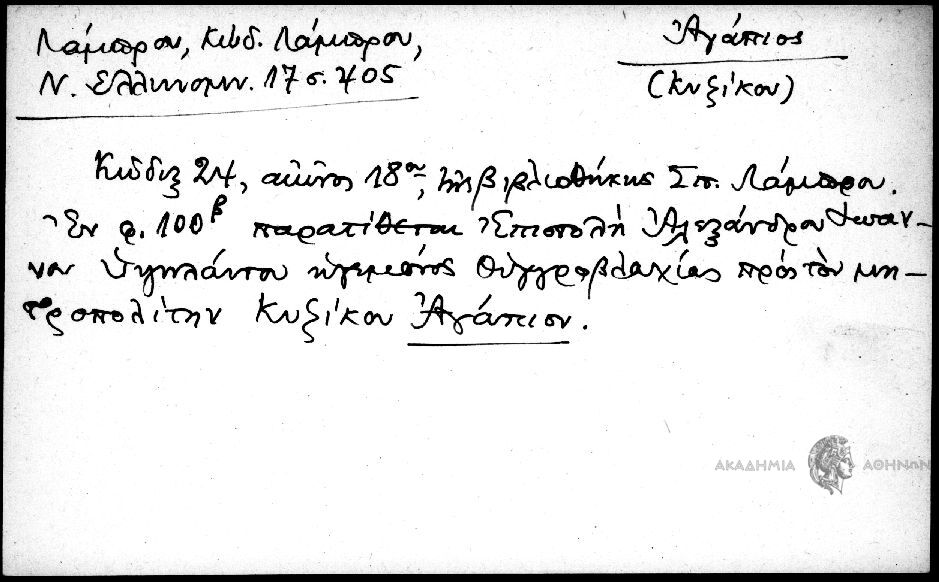 Λάμπρου, Κώδ. Λάμπρου,
Ν. Ἑλληνομν. 17 σ. 405
Ἀγάπιος
(Κυζίκου)
Κώδιξ 24, αἰῶνος 18ου, τῆς βιβλιοθήκης Σπ. Λάμπρου.
Ἐν φ. 100β παρατίθεται Ἐπιστολὴ Ἀλεξάνδρου Ἰωάν-
νου Ὑψηλάντου ἡγεμόνος Οὐγγροβλαχίας πρὸς τὸν μη-
τροπολίτην Κυζίκου Ἀγάπιον.
ΑΚΑΔΗΜΙΑ ΑΘΗΝΩΝ